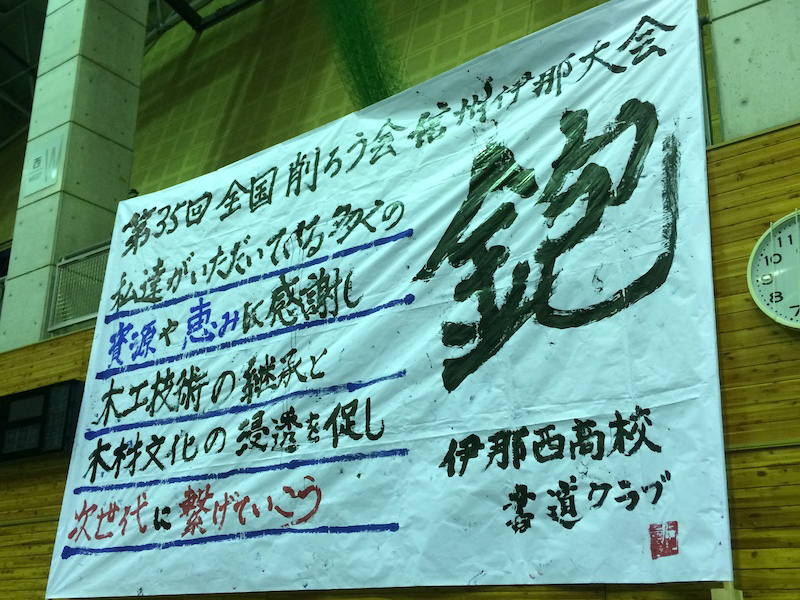 第35回 全国削ろう会 信州伊那大会
鉋
私達がいただいている多くの
資源や恵みに感謝し
木工技術の継承と
木材文化の浸透を促し
次世代に繋げていこう
伊那西高校
書道クラブ
西 W
11
10
9
8